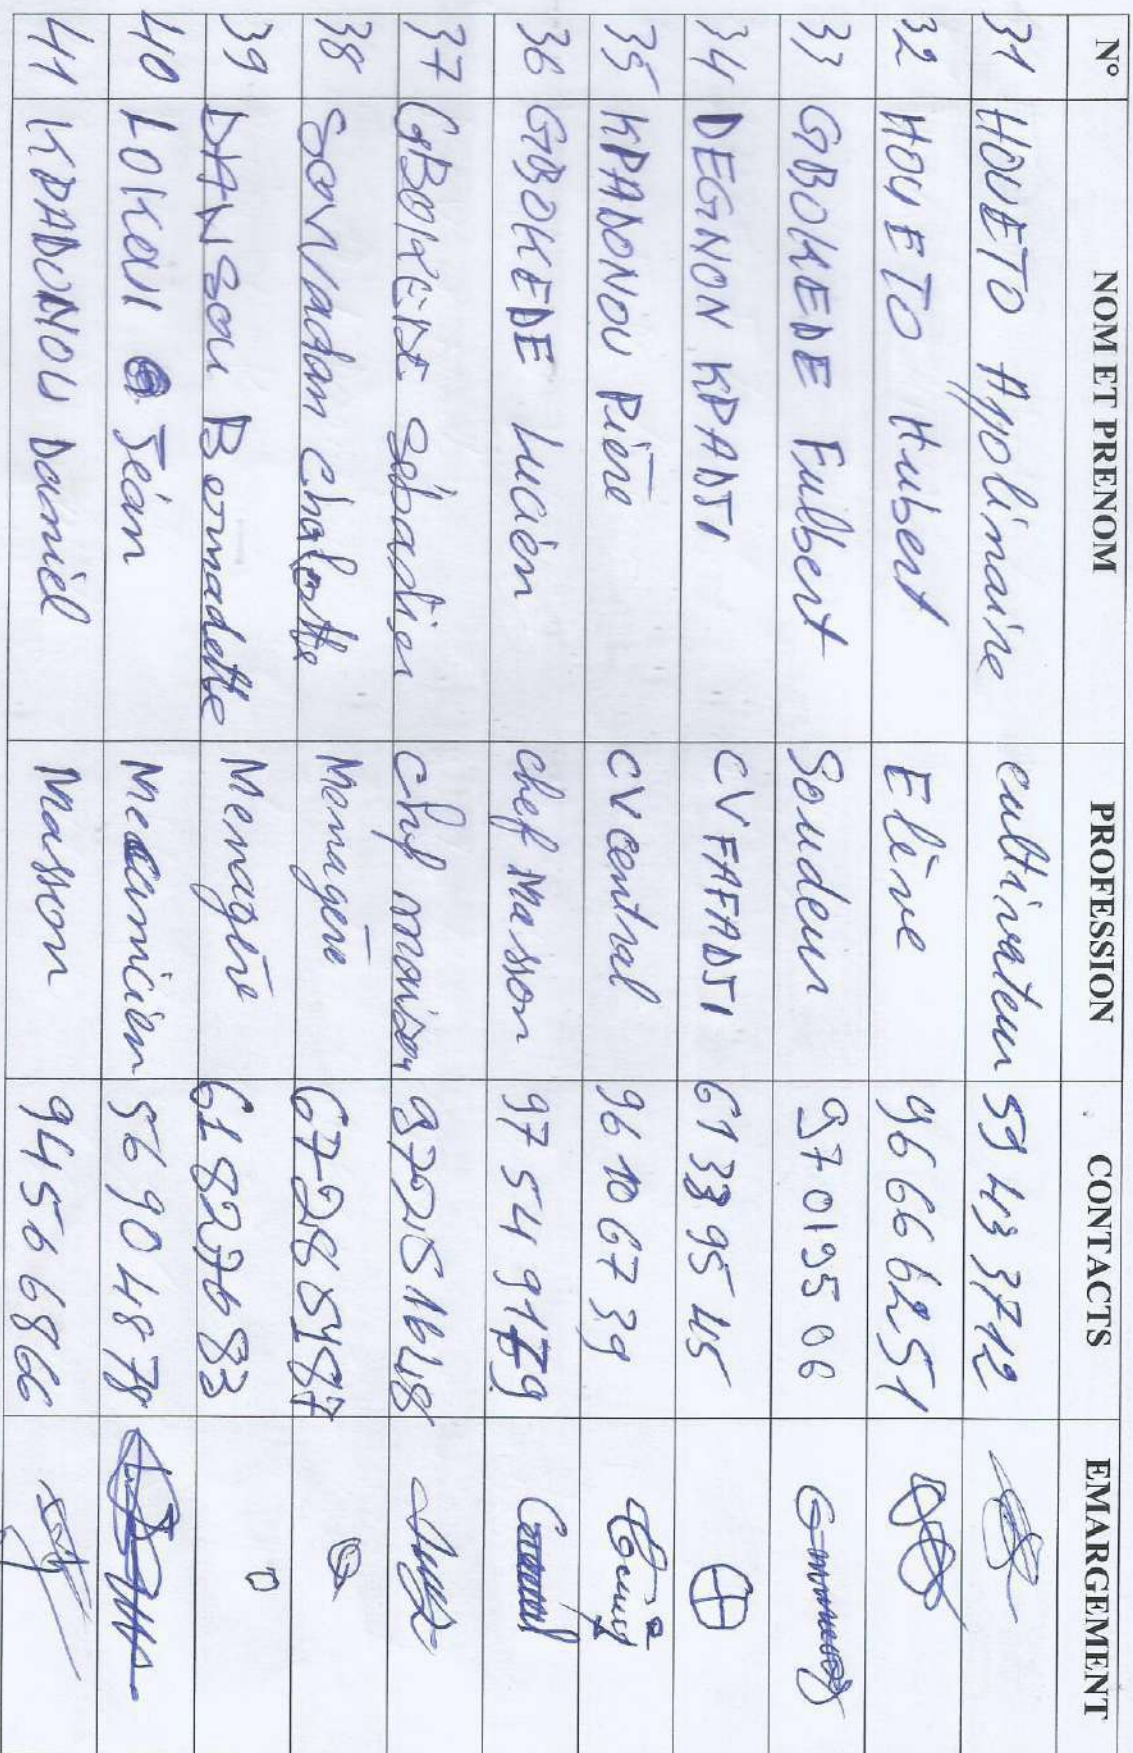 N° NOM ET PRENOM PROFESSION CONTACTS EMARGEMENT
31 HOUETO Appolinaire cultivateur 59 43 37 12
32 HOUETO Hubert Elève 96 66 62 51
33 GBOKEDE Fulbert Soudeur 97 01 95 06
34 DEGNON KPADJI CV FAFADJI 61 33 95 45
35 KPADONOU Pière CV central 96 10 67 39
36 GBOKEDE Lucien chef Masson 97 54 91 79
37 GBOKEDE chef maison
38 Menagère 67 28 51 87
39 DANSOU Bernadette Menagère 61 82 76 83
40 LOKOUI Jean Mecanicien 56 90 48 78
41 KPADONOU Daniel Masson 94 56 68 66